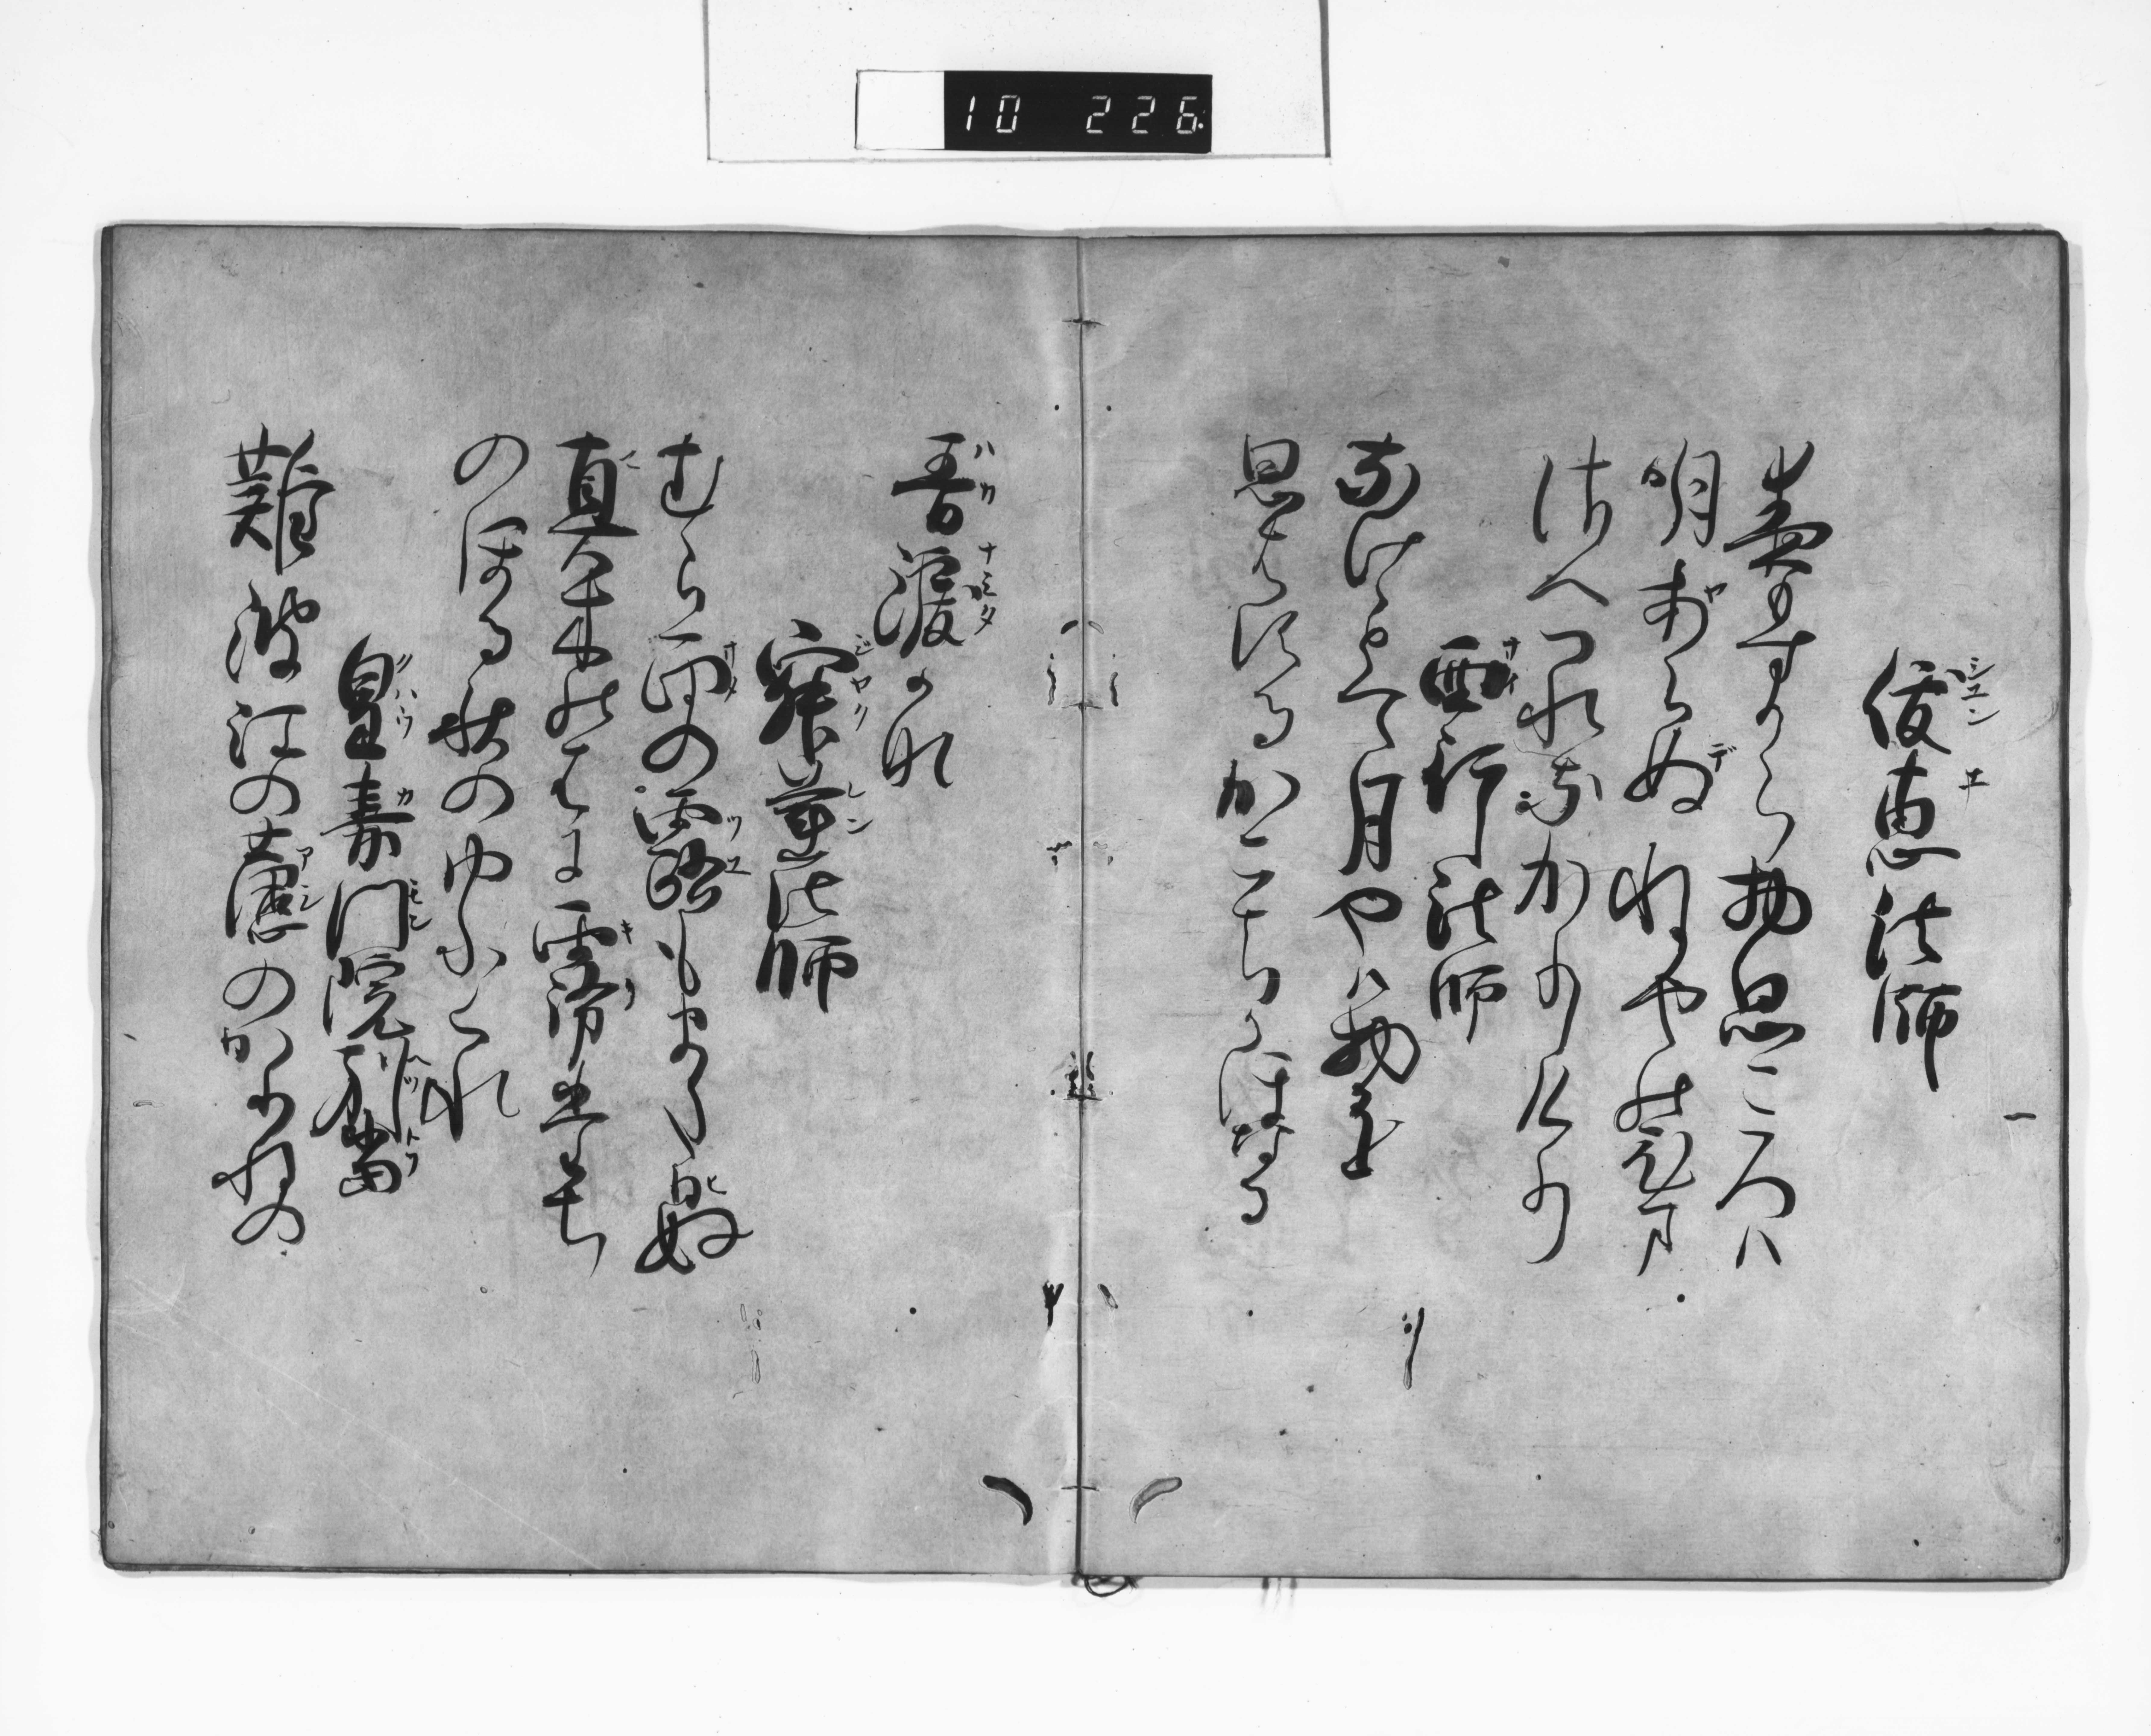 10 226
俊恵法師
夜もすから物思ころハ
明やらぬねやのひま
さへつれなかりけり
西行法師
なけゝとて月やハ物を
思はするかこちかほなる
吾涙かな
寂蓮法師
むら雨の露もまたひぬ
真木のはに霧たち
のほる秋のゆふくれ
皇嘉門院別當
難波江の蘆のかりねの